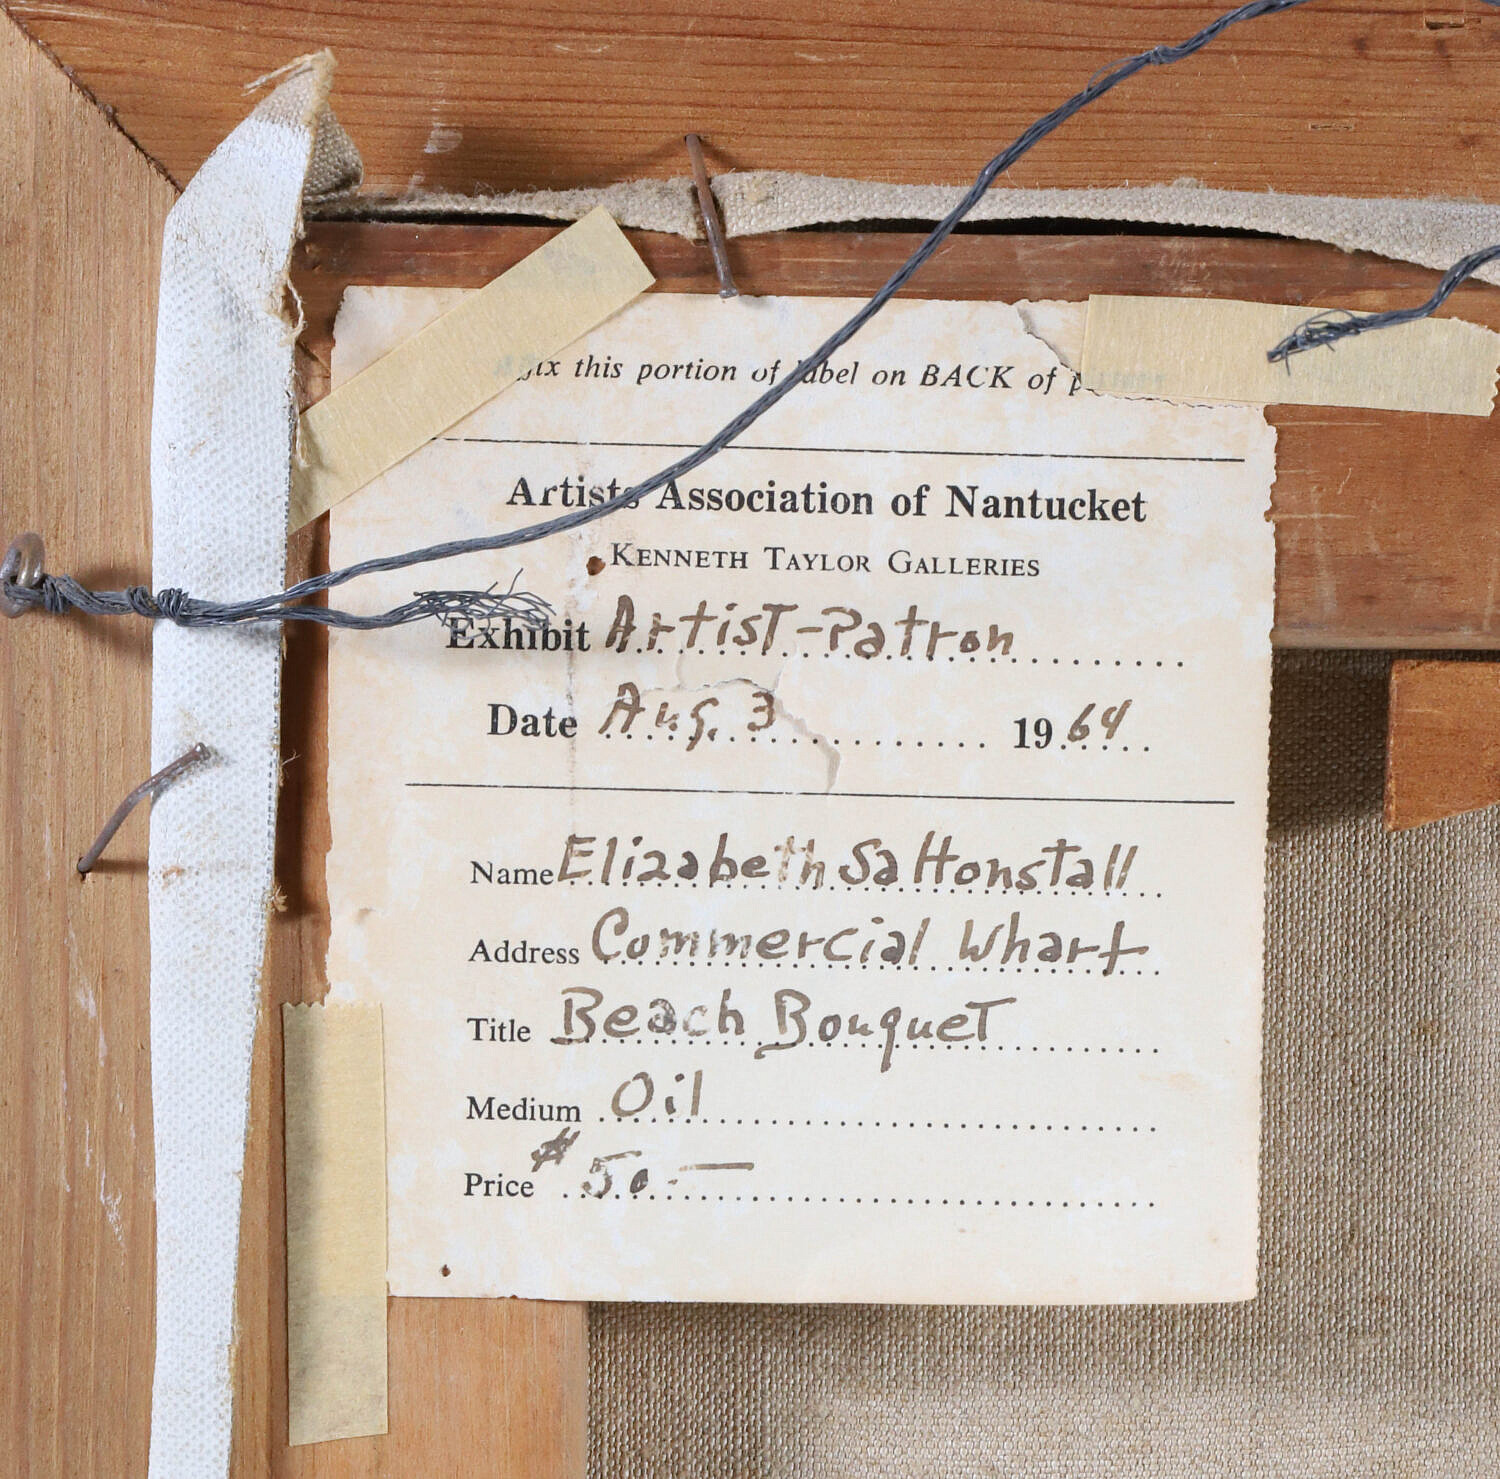 this portion of label on BACK of
Artists Association of Nantucket
KENNETH TAYLOR GALLERIES
Exhibit Artist-Patron
Date Aug. 3 1964
Name Elizabeth Saltonstall
Address Commercial Wharf
Title Beach Bouquet
Medium Oil
Price $50.—